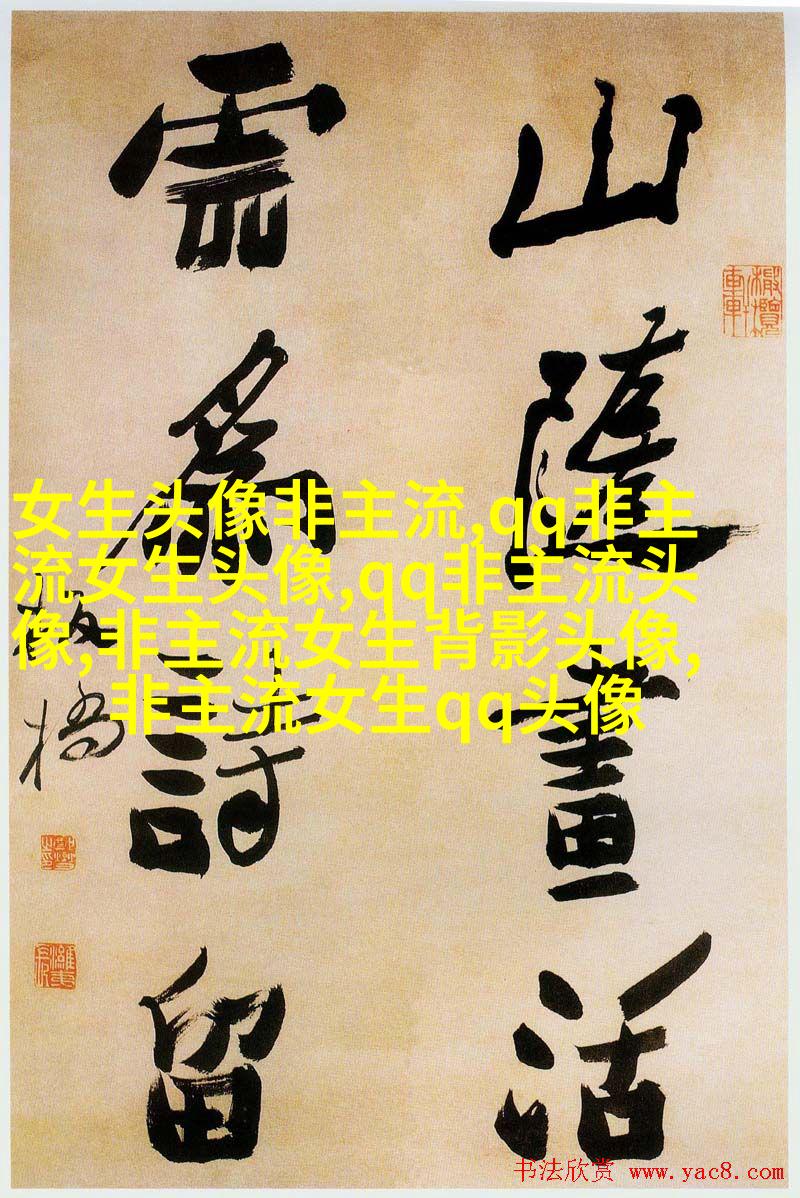 山隨畫活
雲爲詩留
板橋
女生头像非主流,qq非主
流女生头像,qq非主流头
像,非主流女生背影头像,
非主流女生qq头像
书法欣赏 www.yac8.com